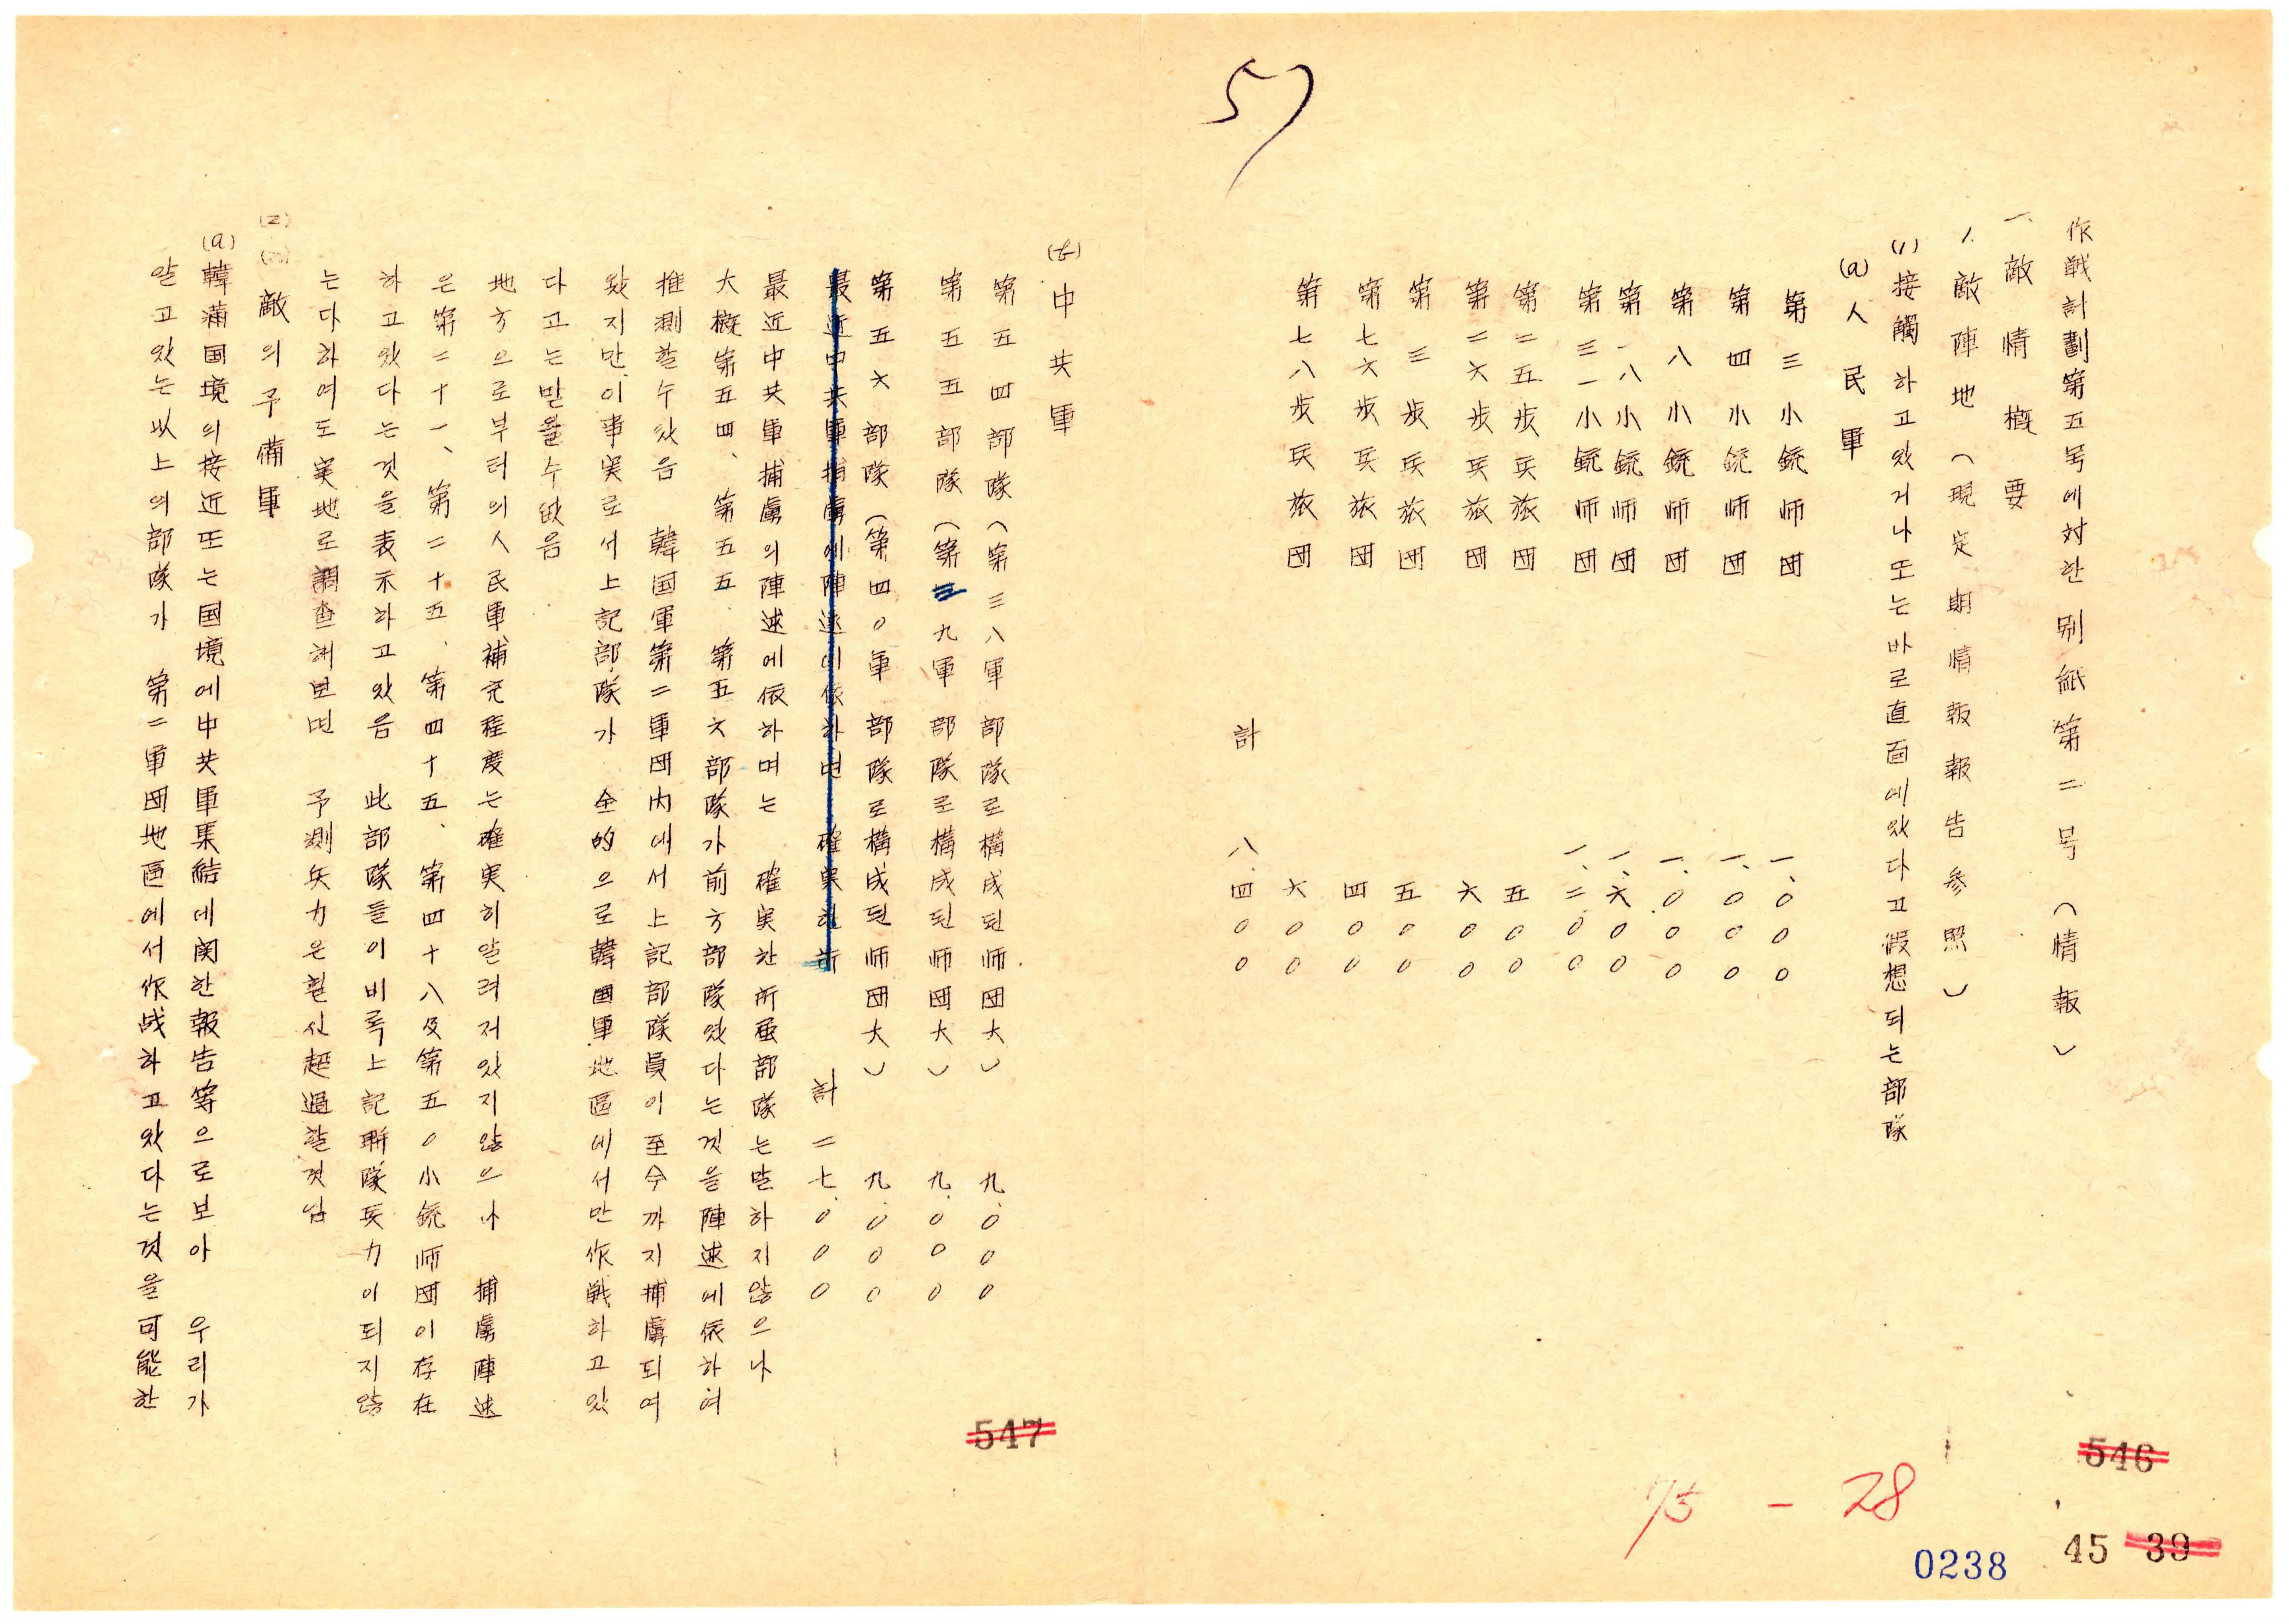 57
作戦計劃第五号에対한 別紙第二号(情報)
一、敵情概要
1. 敵陣地(現定期情報報告参照)
(1) 接觸하고있거나또는바로直面에있다고假想되는部隊
(a) 人民軍
第三小銃师団 一、000
第四小銃师団 一、000
第八小銃师団 一、000
第一八小銃师団 一、六00
第三一小銃师団 一、二00
第二五步兵旅団 五00
第二六步兵旅団 六00
第三步兵旅団 五00
第七六步兵旅団 四00
第七八步兵旅団 六00
計 八、四00
(b) 中共軍
第五四部隊(第三八軍部隊로構成된师団大) 九、000
第五五部隊(第三九軍部隊로構成된师団大) 九、000
第五六部隊(第四0軍部隊로構成된师団大) 九、000
最近中共軍捕虜에陳述에依하면 確実한所 計 二七、000
最近中共軍捕虜의陳述에依하며는 確実한所属部隊는말하지않으나
大概第五四、第五五 第五六部隊가前方部隊였다는것을陳述에依하여
推測할수있음 韓国軍第二軍団内에서上記部隊員이至今까지捕虜되여
왔지만이事実로서上記部隊가 全的으로韓國軍地區에서만作戦하고있
다고는믿을수없음
地方으로부터의人民軍補充程度는確実히알려저있지않으나 捕虜陳述
은第二十一、第二十五、第四十五、第四十八及第五0小銃师団이存在
하고있다는것을表示하고있음 此部隊들이비록上記聯隊兵力이되지않
는다하여도実地로調査해보면 予測兵力은훨신超過할것임
敵의予備軍
(a) 韓滿国境의接近또는国境에中共軍集結데関한報告等으로보아 우리가
알고있는以上의部隊가 第二軍団地區에서作战하고있다는것을可能한
547
546
15 - 28
45 39
0238